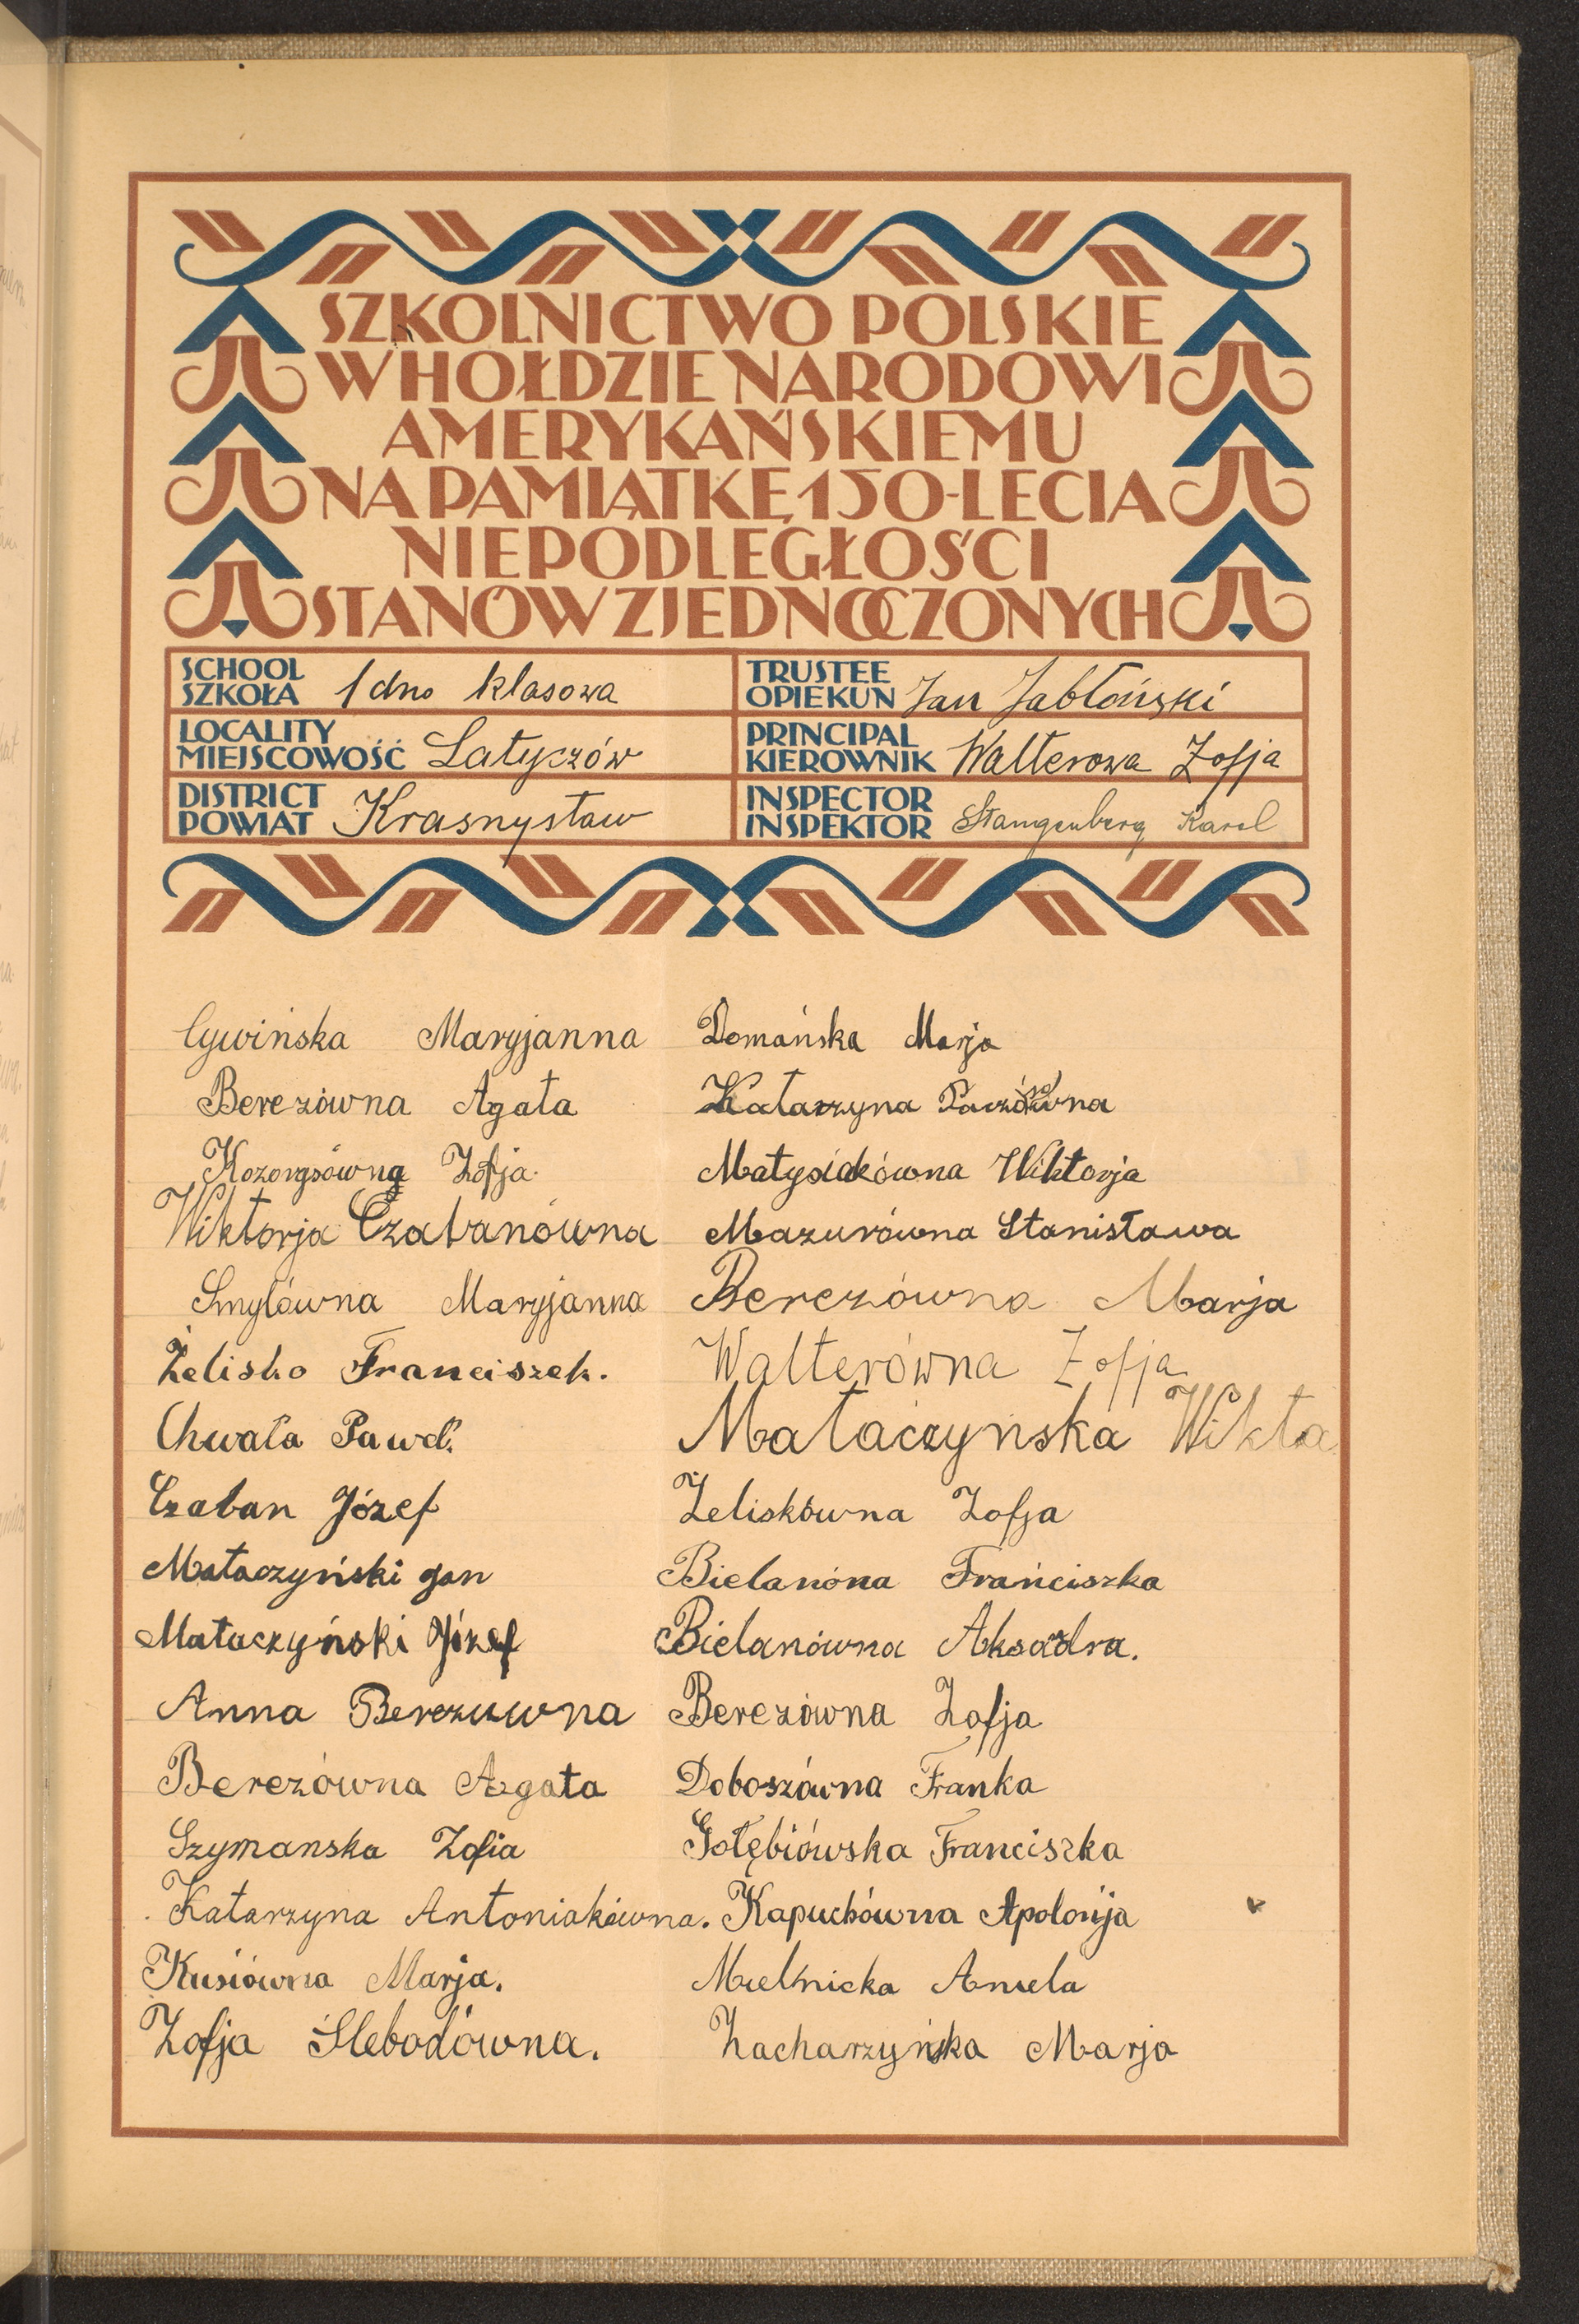 SZKOLNICTWO POLSKIE
W HOŁDZIE NARODOWI
AMERYKAŃSKIEMU
NA PAMIĄTKĘ 150-LECIA
NIEPODLEGŁOŚCI
STANÓW ZJEDNOCZONYCH
SCHOOL
SZKOŁA 1dno klasowa
TRUSTEE
OPIEKUN Jan Jabłoński
LOCALITY
MIEJSCOWOŚĆ Latyczów
PRINCIPAL
KIEROWNIK Walterowa Zofja
DISTRICT
POWIAT Krasnystaw
INSPECTOR
INSPEKTOR Stangenberg Karol
Cywińska Maryjanna
Berezówna Agata
Zofja
Wiktorja Czabanówna
Smylówna Maryjanna
Żelisko Franciszek.
Chwała Paweł.
Czaban Józef
Mataczyński Jan
Mataczyński Józef
Anna Berezuwna
Berezówna Agata
Szymanska Zofia
Katarzyna Antoniakówna.
Kusiówna Marja.
Zofja Ślebodówna.
Domańska Marja
Katarzyna
Matysiakówna Wiktorja
Mazurówna Stanisława
Berezówna Marja
Walterówna Zofja
Mataczyńska Wikta
Zeliskówna Zofja
Bielanóna Frańciszka
Bielanówna
Berezówna Zofja
Doboszówna Franka
Gołębiówska Franciszka
Kapuchówna Apolońja
Mielnicka Aniela
Zacharzyńska Marja